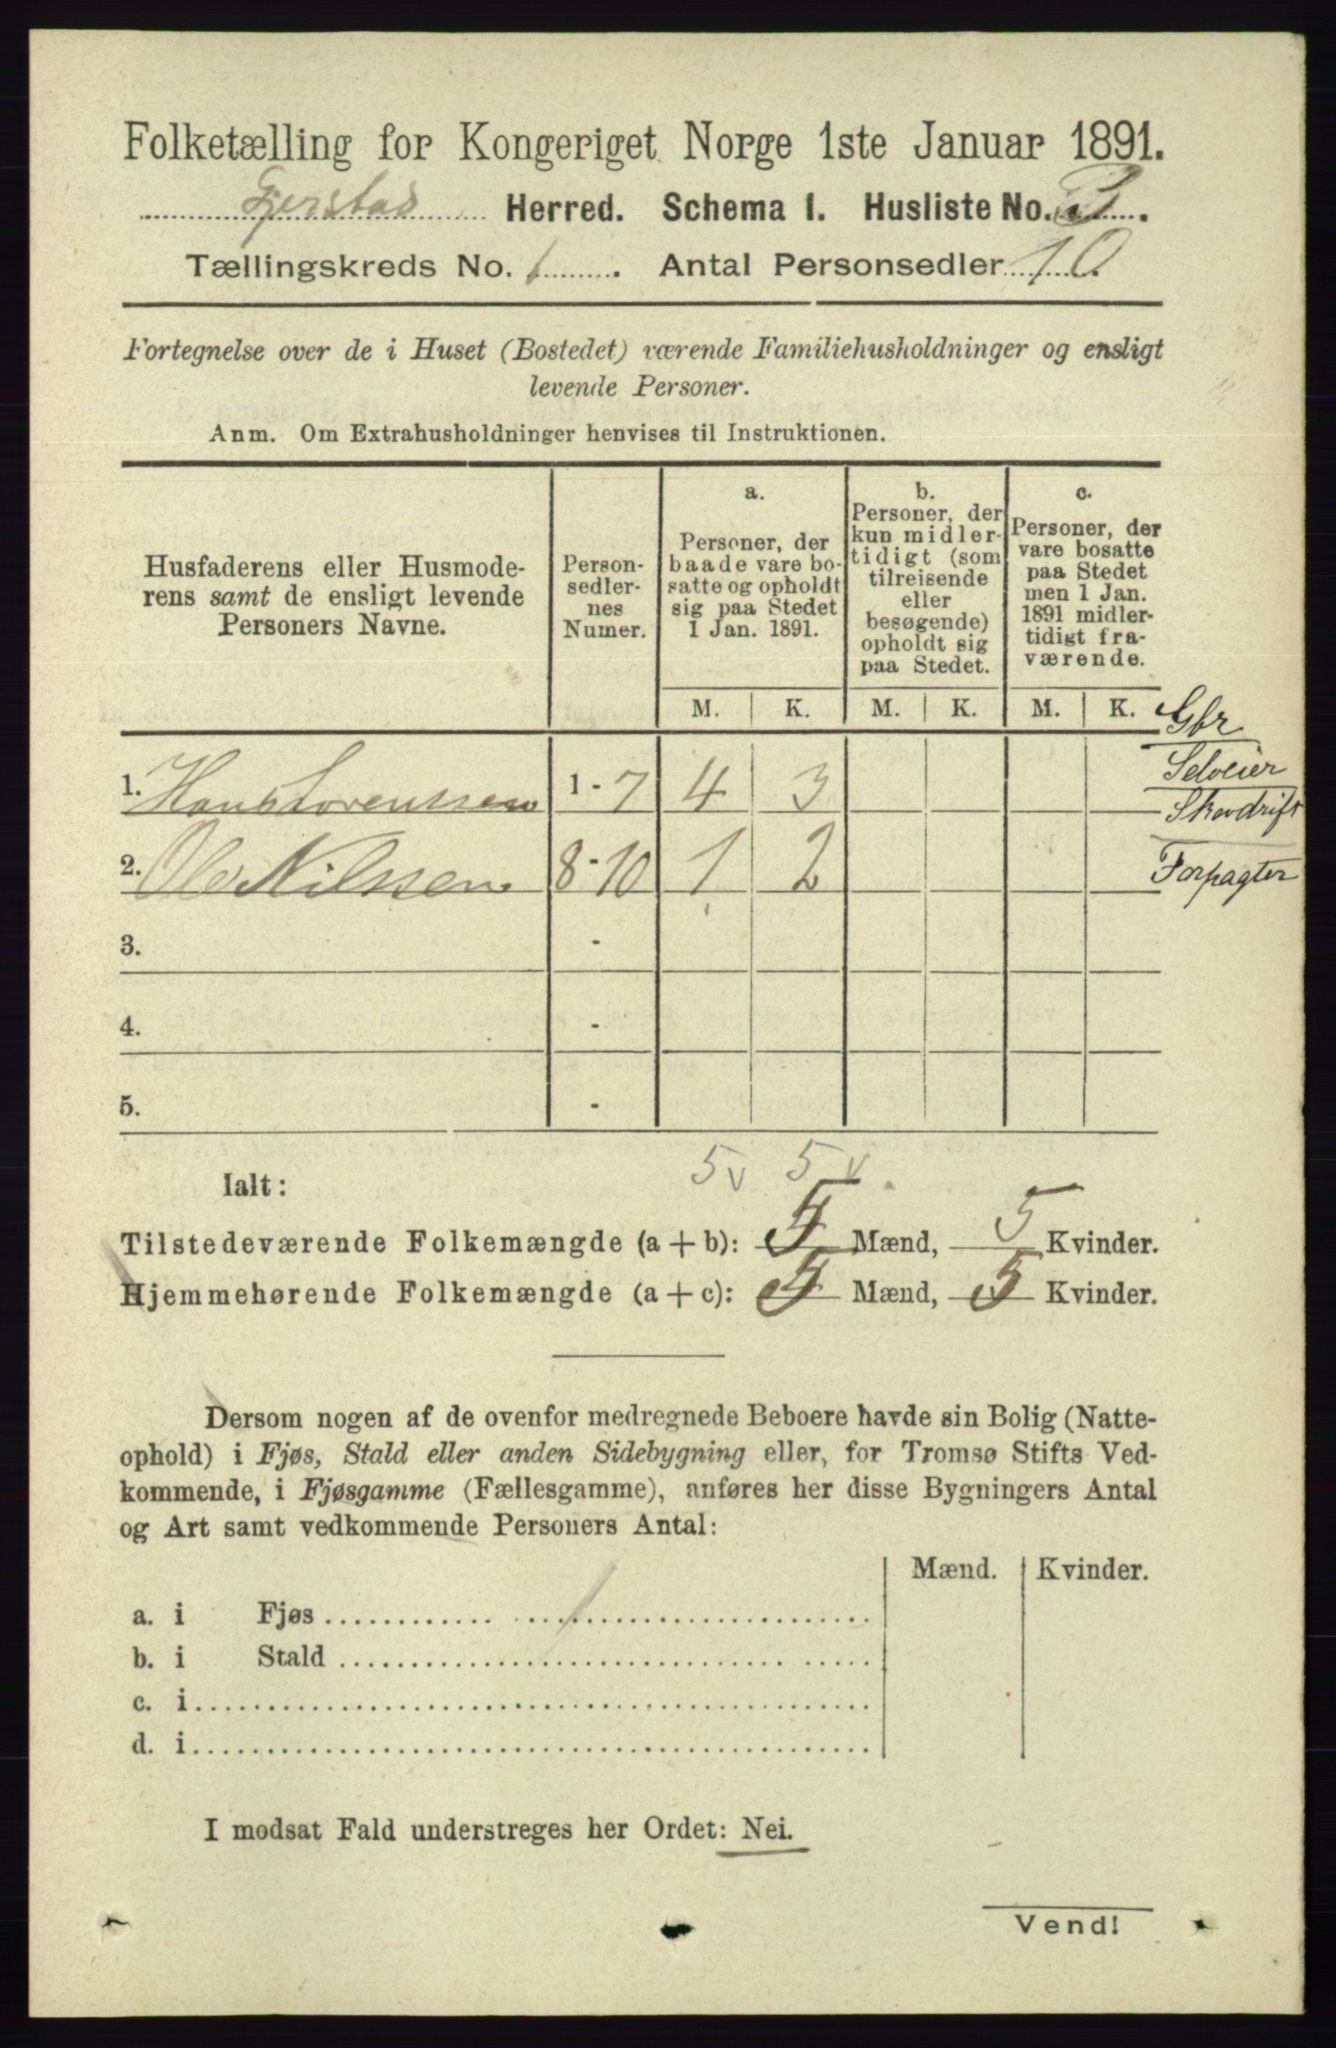 Folketælling for Kongeriget Norge 1ste Januar 1891.
Gjerstad Herred. Schema I. Husliste No. 3.
Tællingskreds No. 1. Antal Personsedler 10.
Fortegnelse over de i Huset (Bostedet) værende Familiehusholdninger og ensligt
levende Personer.
Anm. Om Extrahusholdninger henvises til Instruktionen.
Husfaderens eller Husmode-
rens samt de ensligt levende
Personers Navne.
Person-
sedler-
nes
Numer.
a.
Personer, der
baade vare bo-
satte og opholdt
sig paa Stedet
1 Jan. 1891.
b.
Personer, der
kun midler-
tidigt (som
tilreisende
eller
besøgende)
opholdt sig
paa Stedet.
c.
Personer, der
vare bosatte
paa Stedet
men 1 Jan.
1891 midler-
tidigt fra-
værende.
M. K. M. K. M. K.
Gbr
Selveier
1. Hans Lorentssen 1 - 7 4 3
Skovdrift
2. Ole Nilssen 8 - 10 1 2 Forpagter
3. -
4. -
5. -
5 v 5 v
Ialt:
Tilstedeværende Folkemængde (a + b): 5 Mænd, 5 Kvinder.
Hjemmehørende Folkemængde (a + c): 5 Mænd, 5 Kvinder.
Dersom nogen af de ovenfor medregnede Beboere havde sin Bolig (Natte-
ophold) i Fjøs, Stald eller anden Sidebygning eller, for Tromsø Stifts Ved-
kommende, i Fjøsgamme (Fællesgamme), anføres her disse Bygningers Antal
og Art samt vedkommende Personers Antal:
Mænd. Kvinder.
a. i Fjøs
b. i Stald
c. i
d. i
I modsat Fald understreges her Ordet: Nei.
Vend!